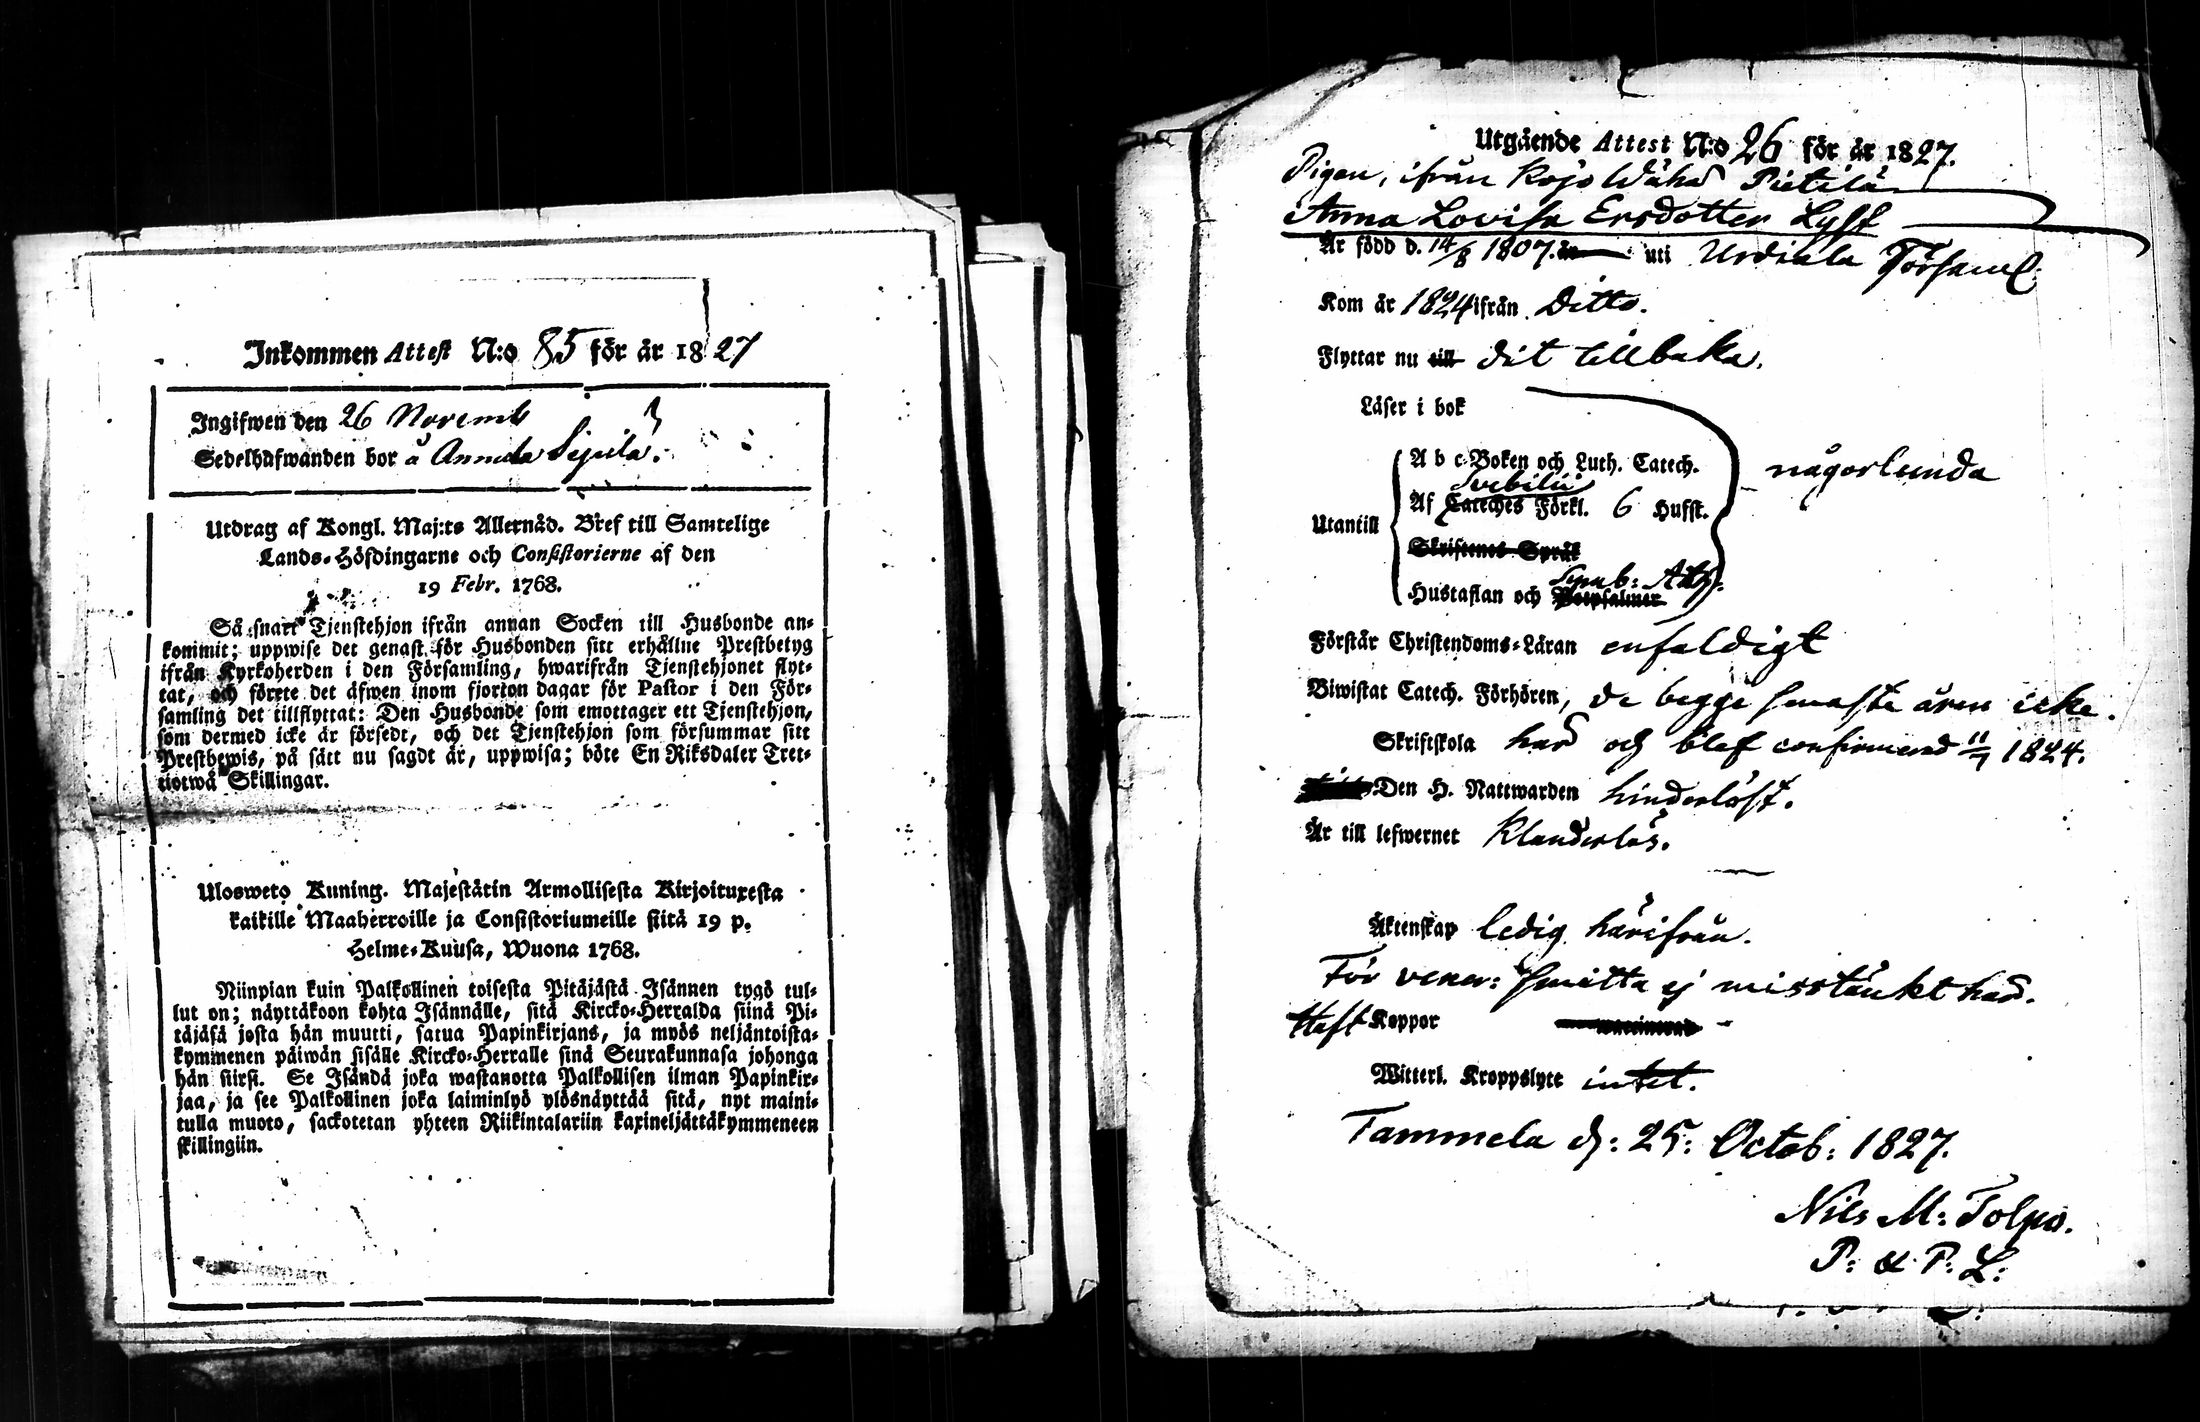 Inkommen Attest N:o 85 för år 1827
Ingifwen den 26 Novemb
Sedelhafwanden bor å Annula Sipilä.
Utdrag af Kongl. Maj:ts Allernåd. Bref till Samtelige
Lands-Höfdingarne och Consistorierne af den
19 Febr. 1768.
Så snart Tjenstehjon ifrån annan Socken till Husbonde an-
kommit; uppwise det genast för Husbonden sitt erhållne Prestbetyg
ifrån Kyrkoherden i den Församling, hwarifrån Tjenstehjonet flyt-
tat, och förete det äfwen inom fjorton dagar för Pastor i den För-
samling det tillflyttat: Den Husbonde som emottager ett Tjenstehjon,
som dermed icke är försedt, och det Tjenstehjon som försummar sitt
Prestbewis, på sätt nu sagdt är, uppwisa; böte En Riksdaler Tret-
tiotwå Skillingar.
Ulosweto Kuning. Majestätin Armollisesta Kirjoituxesta
kaikille Maaherroille ja Consistoriumeille siitä 19 p.
Helme-Kuusa, Wuona 1768.
Niinpian kuin Palkollinen toisesta Pitäjästä Isännen tygö tul-
lut on; näyttäkoon kohta Isännälle, sitä Kircko-Herralda siinä Pi-
täjäsä josta hän muutti, satua Papinkirjans, ja myös neljäntoista-
kymmenen päiwän sisälle Kircko-Herralle sinä Seurakunnasa johonga
hän siirsi. Se Isändä joka wastanotta Palkollisen ilman Papinkir-
jaa, ja see Palkollinen joka laiminlyö ylösnäyttää sitä, nyt maini-
tulla muoto, sackotetan yhteen Riikintalariin kaxineljättäkymmeneen
skillingiin.
Utgående Attest N:o 26 för år 1827.
Pigan, ifrån Kojo Wähä Pietilä
Anna Lovisa Ersdotter Lyst
Är född d. 14/8 1807. uti Urdiala Församl:
Kom år 1824 ifrån Ditto.
Flyttar nu till dit tillbaka.
Läser i bok
A b c-Boken och Luth. Catech. någorlunda
Svebilii
Utantill Af Cateches Förkl. 6 Hufst.
Skriftenes Språk
Symb: Ath:
Hustaflan och Botpsalmer
Förstår Christendoms-Läran enfaldigt
Biwistat Catech. Förhören, de begge senaste åren icke.
Skriftskola har och blef confirmerad 11/7 1824.
Den H. Nattwarden hinderlöst.
Är till lefwernet Klanderlös.
Äktenskap ledig härifrån.
För vener: smitta ej misstänkt har.
Haft Koppor
Witterl. Kroppslyte intet.
Tammela d: 25: Octob: 1827.
Nils M: Tolpo.
P: & P: L: